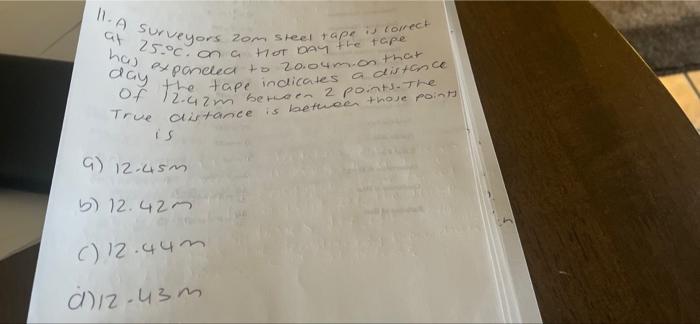 11. A surveyors 20m steel tape is correct
at 25.0c. on a HOT DAY the tape
has expanded to 20.04m. on that
day the tape indicates a distance
of 12.42m between 2 points. The
True distance is between those points
is
a) 12.45m
b) 12.42m
c) 12.44m
d) 12.43m